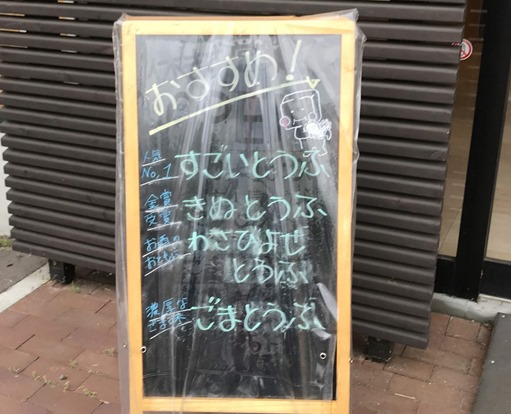 おすすめ!
人気 No.1 すごいとうふ
金賞受賞 きぬとうふ
お酒のおともに わさびよせ
とうふ
濃厚な ごまとうふ